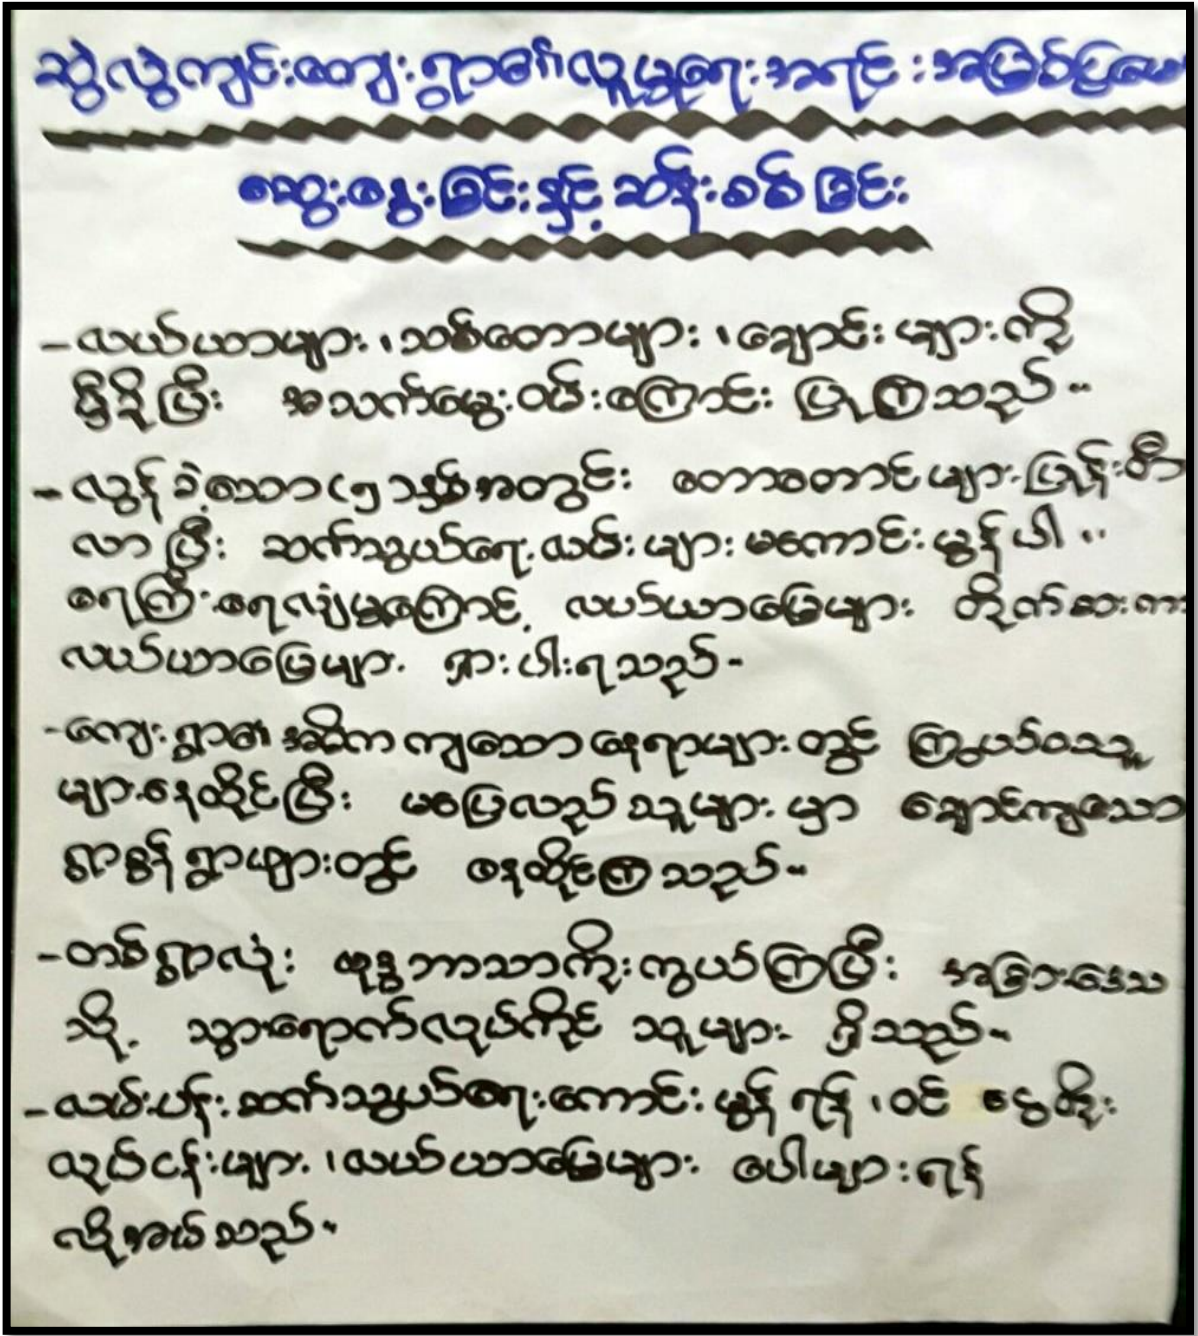 ဆွဲလွဲကျင်းကျေးရွာ၏လူမှုရေးအရင်းအမြစ်ပြမြေ
ဆွေးနွေးခြင်းနှင့် ဆန်းစစ်ခြင်း
- လယ်ယာများ၊ သစ်တောများ၊ ချောင်းများကို
မှီခိုပြီး အသက်မွေးဝမ်းကြောင်း ပြုကြသည်။
- လွန်ခဲ့သော (၅)နှစ်အတွင်း တောတောင်များ ပြုန်းတီး
လာပြီး ဆက်သွယ်ရေးလမ်းများ မကောင်းမွန်ပါ။
ရေကြီးရေလျှံမှုကြောင့် လယ်ယာမြေများ တိုက်ဆားကာ
လယ်ယာမြေများ ရှားပါးရသည်။
- ကျေးရွာ၏ အဓိကကျသောနေရာများတွင် ကြွယ်ဝသူ
များနေထိုင်ပြီး မပြေလည်သူများမှာ ချောင်ကျသော
ရွာစွန်ရွာဖျားတွင် နေထိုင်ကြသည်။
- တစ်ရွာလုံး ဗုဒ္ဓဘာသာကိုးကွယ်ကြပြီး အခြားဒေသ
သို့ သွားရောက်လုပ်ကိုင်သူများ ရှိသည်။
- လမ်းပန်းဆက်သွယ်ရေးကောင်းမွန်ရန်၊ ဝင်ငွေတိုး
လုပ်ငန်းများ၊ လယ်ယာမြေများ ပေါများရန်
လိုအပ်သည်။